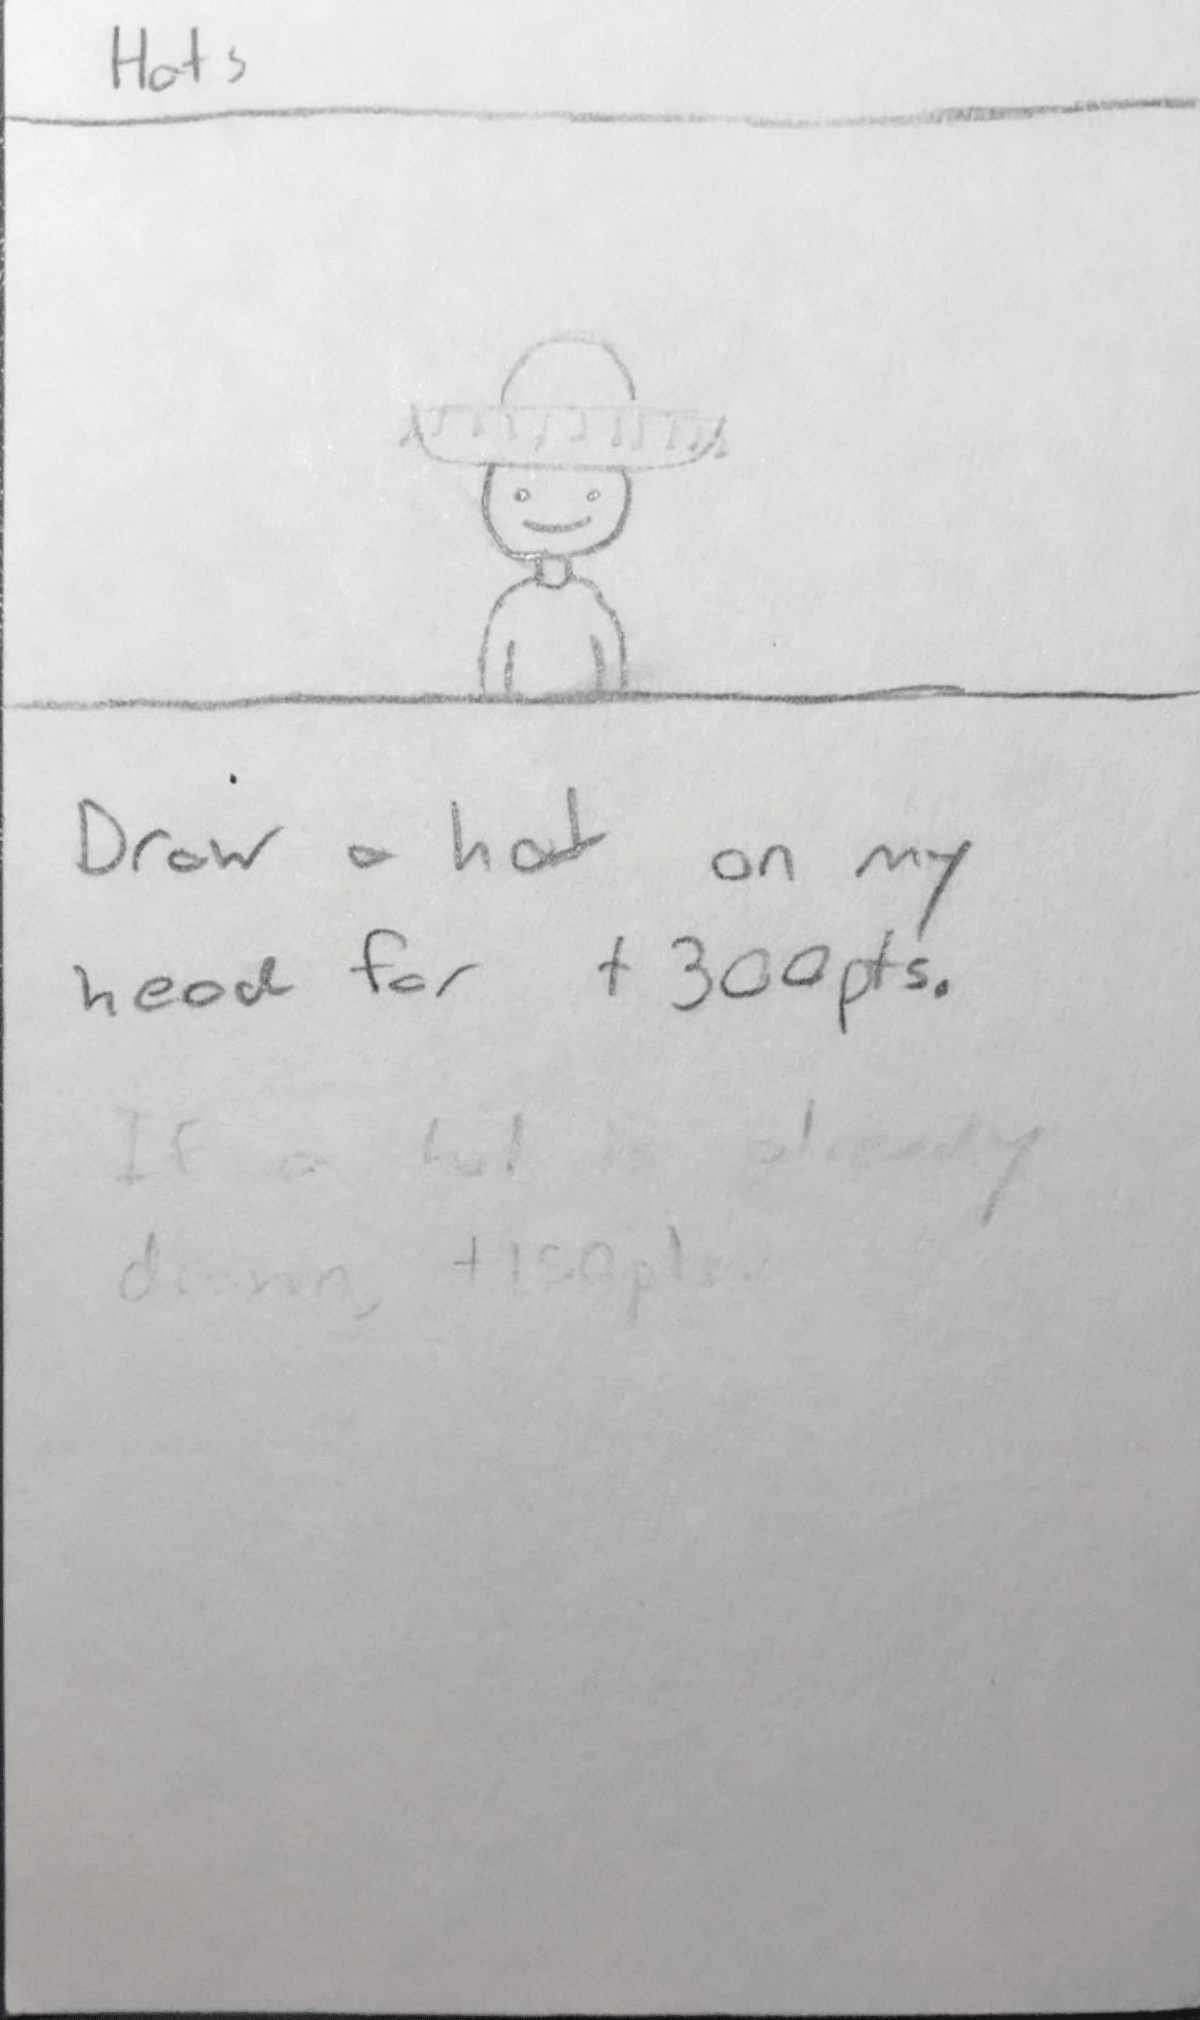 Hats
Draw a hat on my
head for +300pts.
If a hat is already
drawn, +150pts.